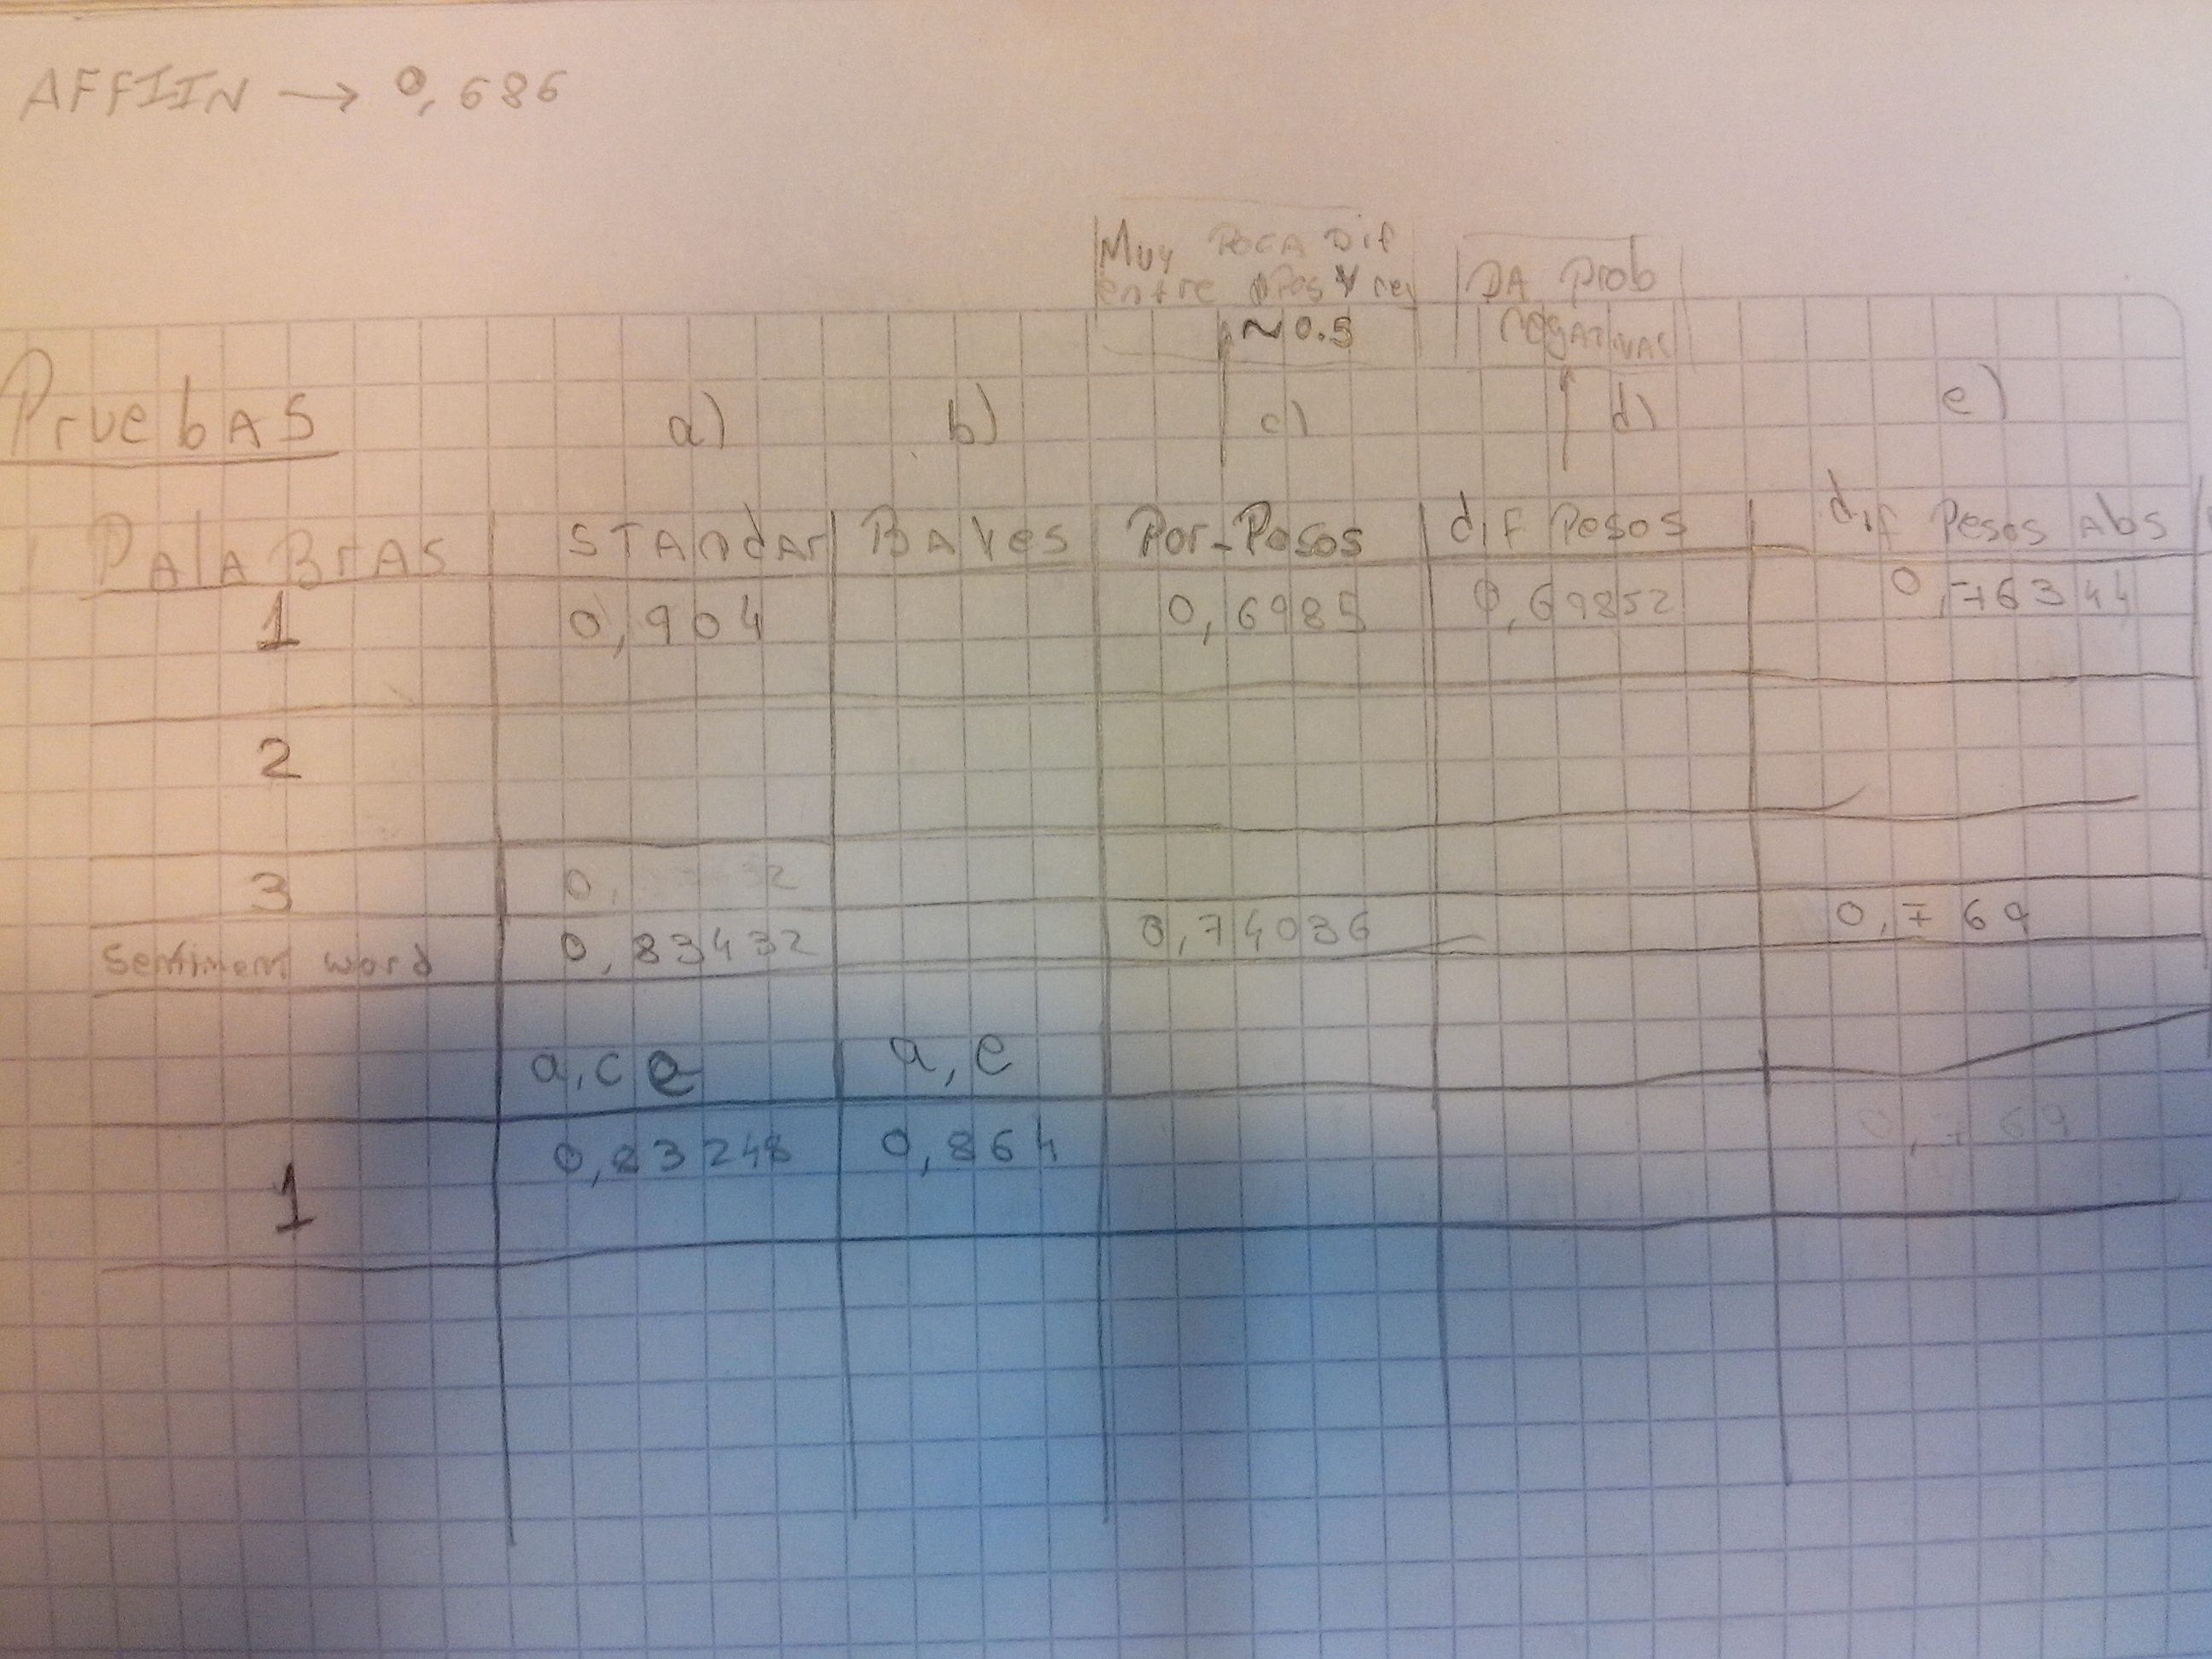 AFFIIN → 0,686
Muy Poca Dif
entre Pos y neg
~0.5
DA Prob
negativas
Pruebas a) b) c) d) e)
PAlABrAS STAndAr BAyes Por-Pesos dif Pesos dif Pesos Abs
1 0,904 0,6985 0,69852 0,76344
2
3
Sentiment word 0,83432 0,74036 0,769
a,c e a,e
1 0,83248 0,864 0,769